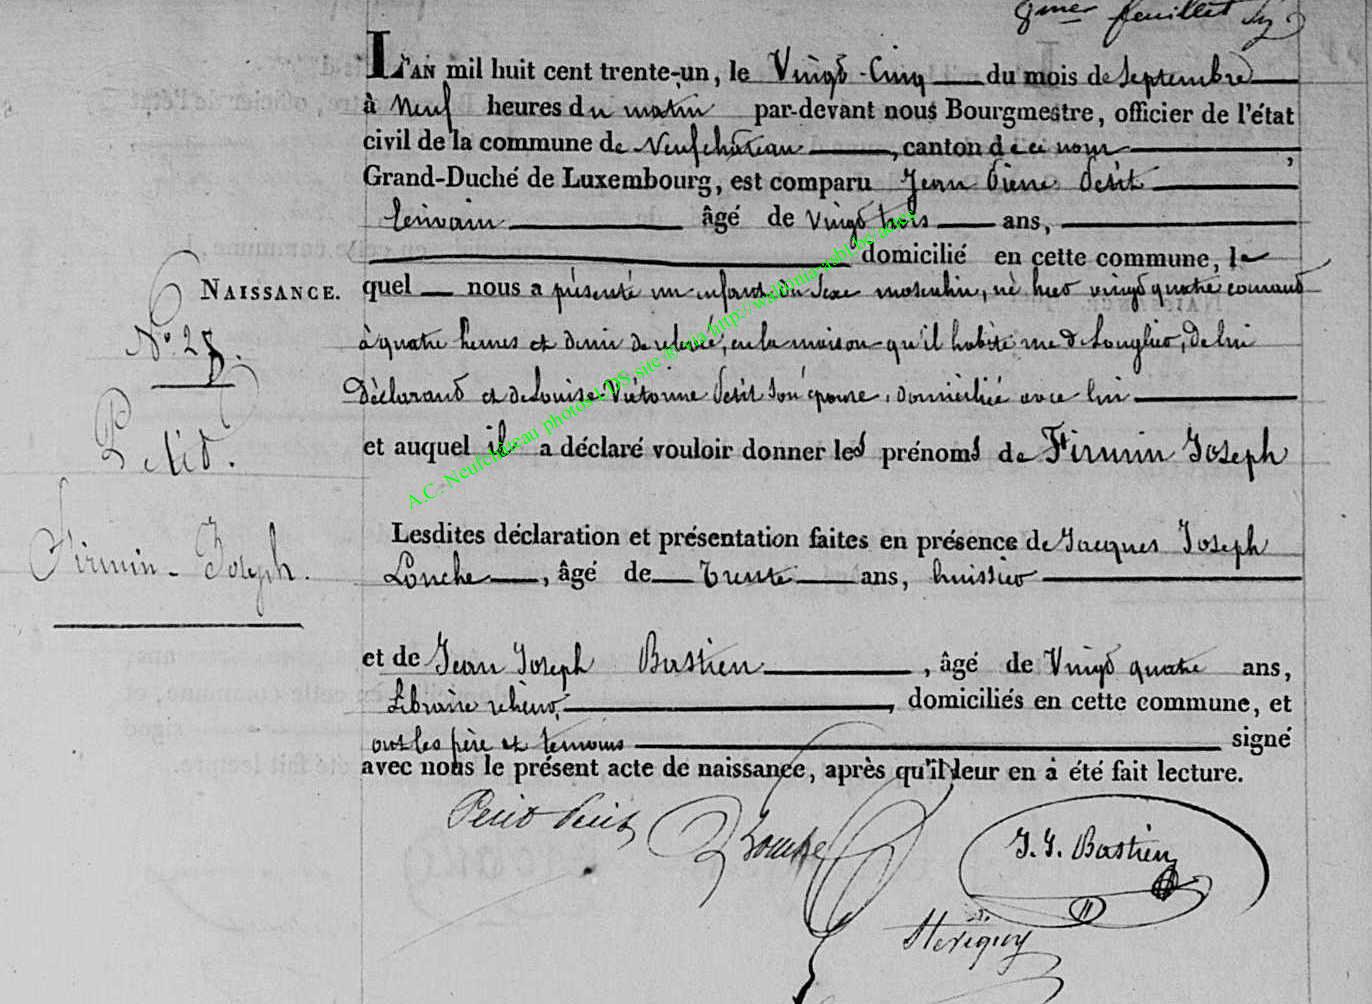 8mer feuillet
L'AN mil huit cent trente-un, le Vingt-Cinq du mois de Septembre
à Neuf heures du matin par-devant nous Bourgmestre, officier de l'état
civil de la commune de Neufchâteau, canton de ce nom,
Grand-Duché de Luxembourg, est comparu Jean Pierre Petit
Ecrivain âgé de vingt trois ans,
domicilié en cette commune, le
NAISSANCE. quel nous a présenté un enfant du sexe masculin, né hier vingt quatre courant
N° 28. à quatre heures et demie de relevée, en la maison qu'il habite rue de Longlier, de lui
Déclarant et de Louise Victorine Petit son épouse, domiciliée avec lui
Petit. et auquel il a déclaré vouloir donner les prénoms de Firmin Joseph
Firmin-Joseph.
Lesdites déclaration et présentation faites en présence de Jacques Joseph
Lonche, âgé de Trente ans, huissier
et de Jean Joseph Bastien, âgé de Vingt quatre ans,
Libraire relieur, domiciliés en cette commune, et
ont les père et témoins signé
avec nous le présent acte de naissance, après qu'il leur en a été fait lecture.
Petit Petit Lonche J. J. Bastien
A.C. Neufchâteau photos LDS site Réalia http://wallonia-asbl.be/actes